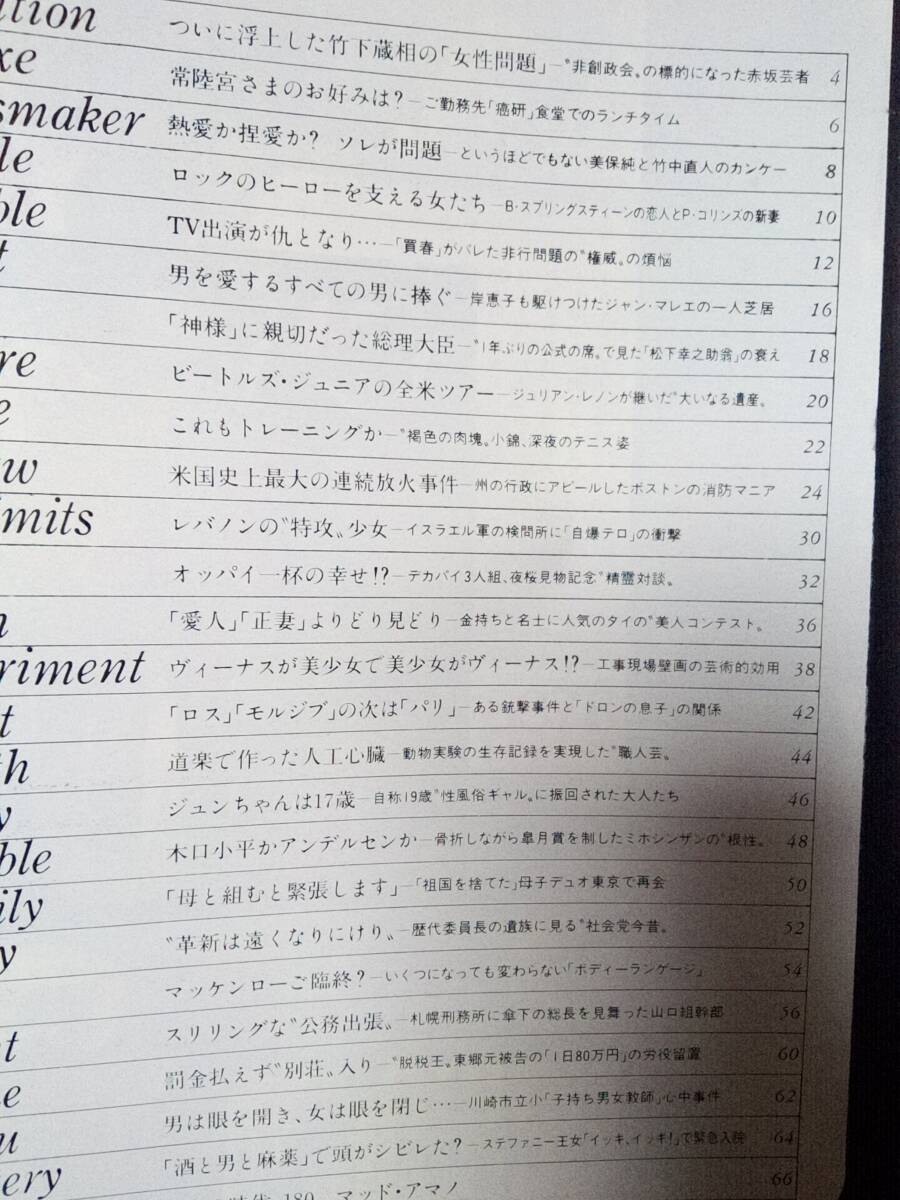 ition ついに浮上した竹下蔵相の「女性問題」—〝非創政会〟の標的になった赤坂芸者 4
xe 常陸宮さまのお好みは?—ご勤務先「癌研」食堂でのランチタイム 6
smaker 熱愛か捏愛か? ソレが問題—というほどでもない美保純と竹中直人のカンケー 8
le ロックのヒーローを支える女たち—B・スプリングスティーンの恋人とP・コリンズの新妻 10
ble TV出演が仇となり…—「買春」がバレた非行問題の〝権威〟の煩悩 12
t 男を愛するすべての男に捧ぐ—岸恵子も駆けつけたジャン・マレエの一人芝居 16
「神様」に親切だった総理大臣—〝1年ぶりの公式の席〟で見た「松下幸之助翁」の衰え 18
re ビートルズ・ジュニアの全米ツアー—ジュリアン・レノンが継いだ〝大いなる遺産〟 20
e これもトレーニングか—〝褐色の肉塊〟小錦、深夜のテニス姿 22
w 米国史上最大の連続放火事件—州の行政にアピールしたボストンの消防マニア 24
imits レバノンの〝特攻〟少女—イスラエル軍の検問所に「自爆テロ」の衝撃 30
オッパイ一杯の幸せ!?—デカパイ3人組、夜桜見物記念〝精霊対談〟 32
n 「愛人」「正妻」よりどり見どり—金持ちと名士に人気のタイの〝美人コンテスト〟 36
riment ヴィーナスが美少女で美少女がヴィーナス!?—工事現場壁画の芸術的効用 38
t 「ロス」「モルジブ」の次は「パリ」—ある銃撃事件と「ドロンの息子」の関係 42
th 道楽で作った人工心臓—動物実験の生存記録を実現した〝職人芸〟 44
y ジュンちゃんは17歳—自称19歳〝性風俗ギャル〟に振回された大人たち 46
ble 木口小平かアンデルセンか—骨折しながら皐月賞を制したミホシンザンの〝根性〟 48
ily 「母と組むと緊張します」—「祖国を捨てた」母子デュオ東京で再会 50
y 〝革新は遠くなりにけり〟—歴代委員長の遺族に見る〝社会党今昔〟 52
マッケンローご臨終?—いくつになっても変わらない「ボディーランゲージ」 54
t スリリングな〝公務出張〟—札幌刑務所に傘下の総長を見舞った山口組幹部 56
e 罰金払えず〝別荘〟入り—〝脱税王〟東郷元被告の「1日80万円」の労役留置 60
u 男は眼を開き、女は眼を閉じ…—川崎市立小「子持ち男女教師」心中事件 62
ery 「酒と男と麻薬」で頭がシビレた?—ステファニー王女「イッキ、イッキ!」で緊急入院 64
180 マッド・アマノ 66